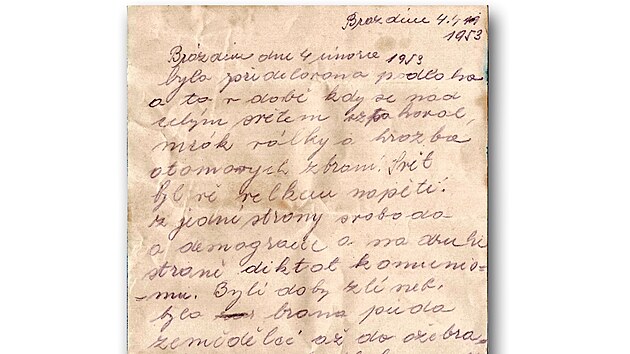 Brozdim 4. 4
1953
Brózdim dne 4 února 1953
byla pridelavana podlaha
a to v dobé kdy se nad
celym světem vztahoval,
mrók války a hrozba
otomových zbraní. Svit
byl vě velkem napětí.
z jedné strony svoboda-
a demogracie a na druhé
straně diktot komunis-
-mu. Byli doby zlí neb.
bylo brana puda
zemědělcé až do ožebra-